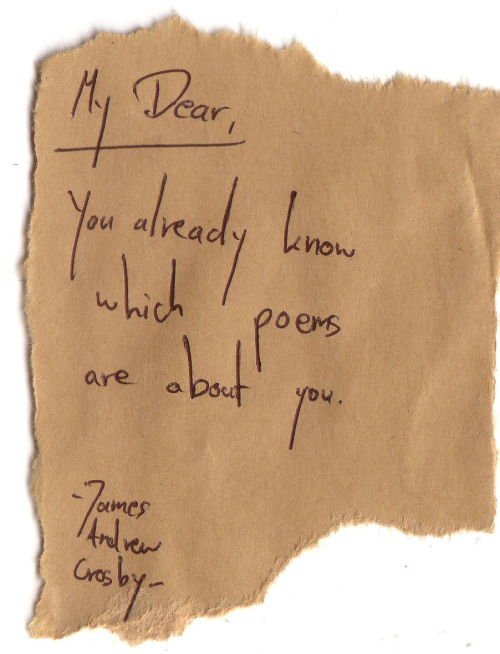 My Dear,
You already know
which poems
are about you.
-James
Andrew
Crosby-